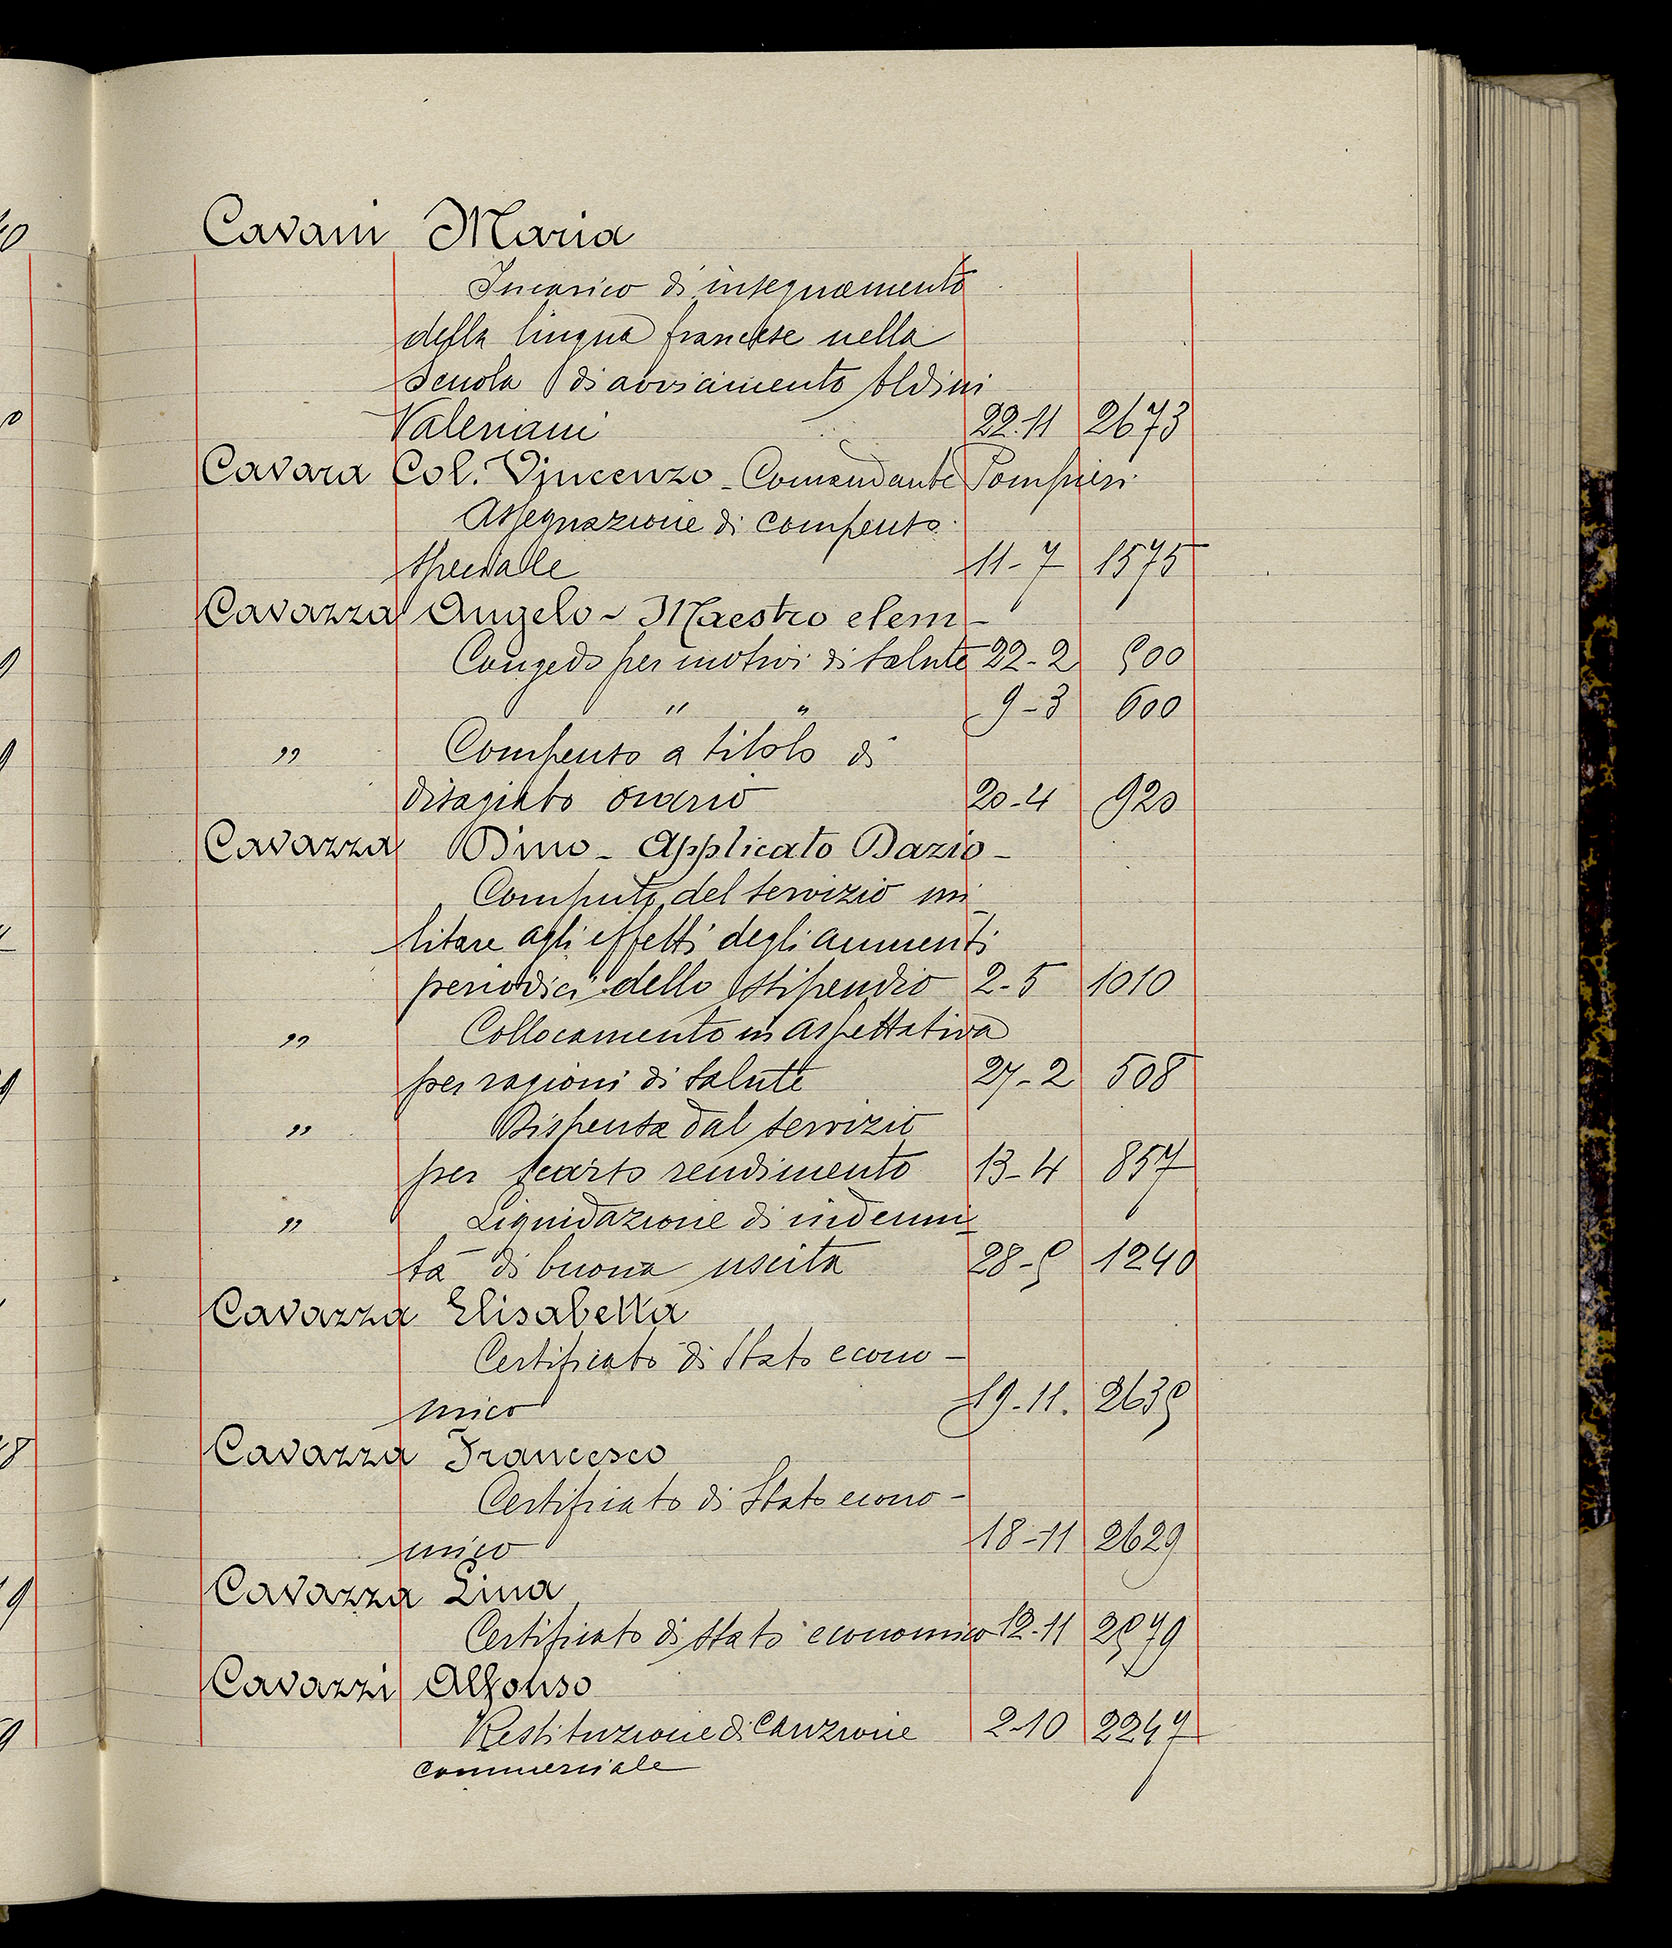 Cavani Maria
Incarico di insegnamento
della lingua francese nella
Scuola di avviamento Aldini
Valeriani 22.11 2673
Cavara Col. Vincenzo - Comandante Pompieri
Assegnazione di compenso
speciale 11-7 1575
Cavazza Angelo - Maestro elem -
Congedo per motivi di salute 22-2 500
" " 9-3 600
" Compenso a titolo di
disagiato orario 20-4 920
Cavazza Dino - Applicato Dazio -
Computo del servizio mi_
litare agli effetti degli aumenti
periodici dello stipendio 2-5 1010
" Collocamento in aspettativa
per ragioni di salute 27-2 508
" Dispensa dal servizio
per scarso rendimento 13-4 857
" Liquidazione di indenni_
tà di buona uscita 28-5 1240
Cavazza Elisabetta
Certificato di Stato econo -
mico 19-11. 2635
Cavazza Francesco
Certificato di Stato econo -
mico 18-11 2629
Cavazza Lina
Certificato di stato economico 12-11 2579
Cavazzi Alfonso
Restituzione di Cauzione 2-10 2247
commerciale